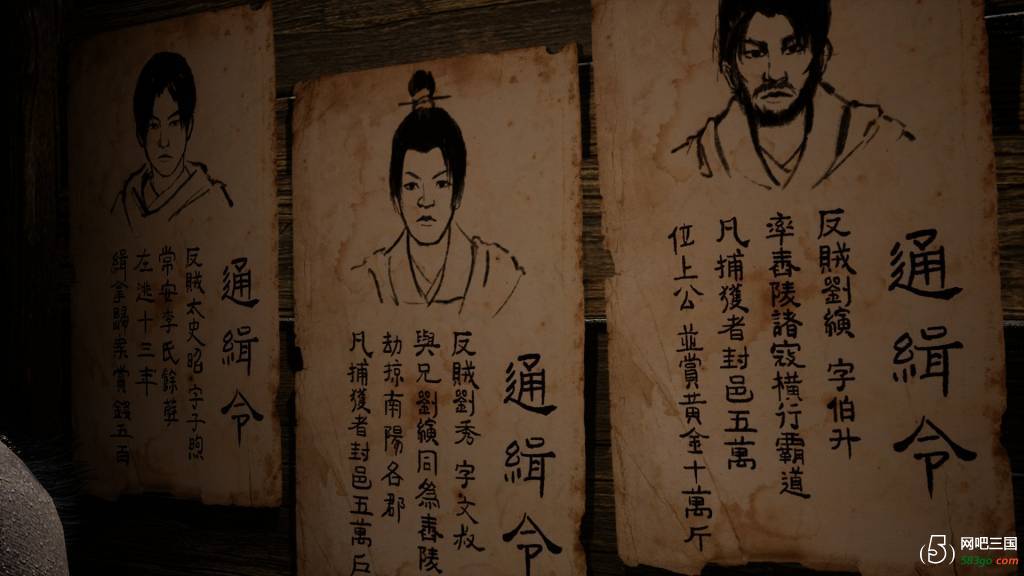 通緝令
反賊劉縯 字伯升
率舂陵諸寇橫行霸道
凡捕獲者封邑五萬
位上公 並賞黃金十萬斤
通緝令
反賊劉秀 字文叔
與兄劉縯同為舂陵
劫掠南陽各郡
凡捕獲者封邑五萬戶
通緝令
反賊太史昭 字子煦
常安李氏餘孽
左逃十三年
緝拿歸案賞錢五百
網吧三国
583go.com